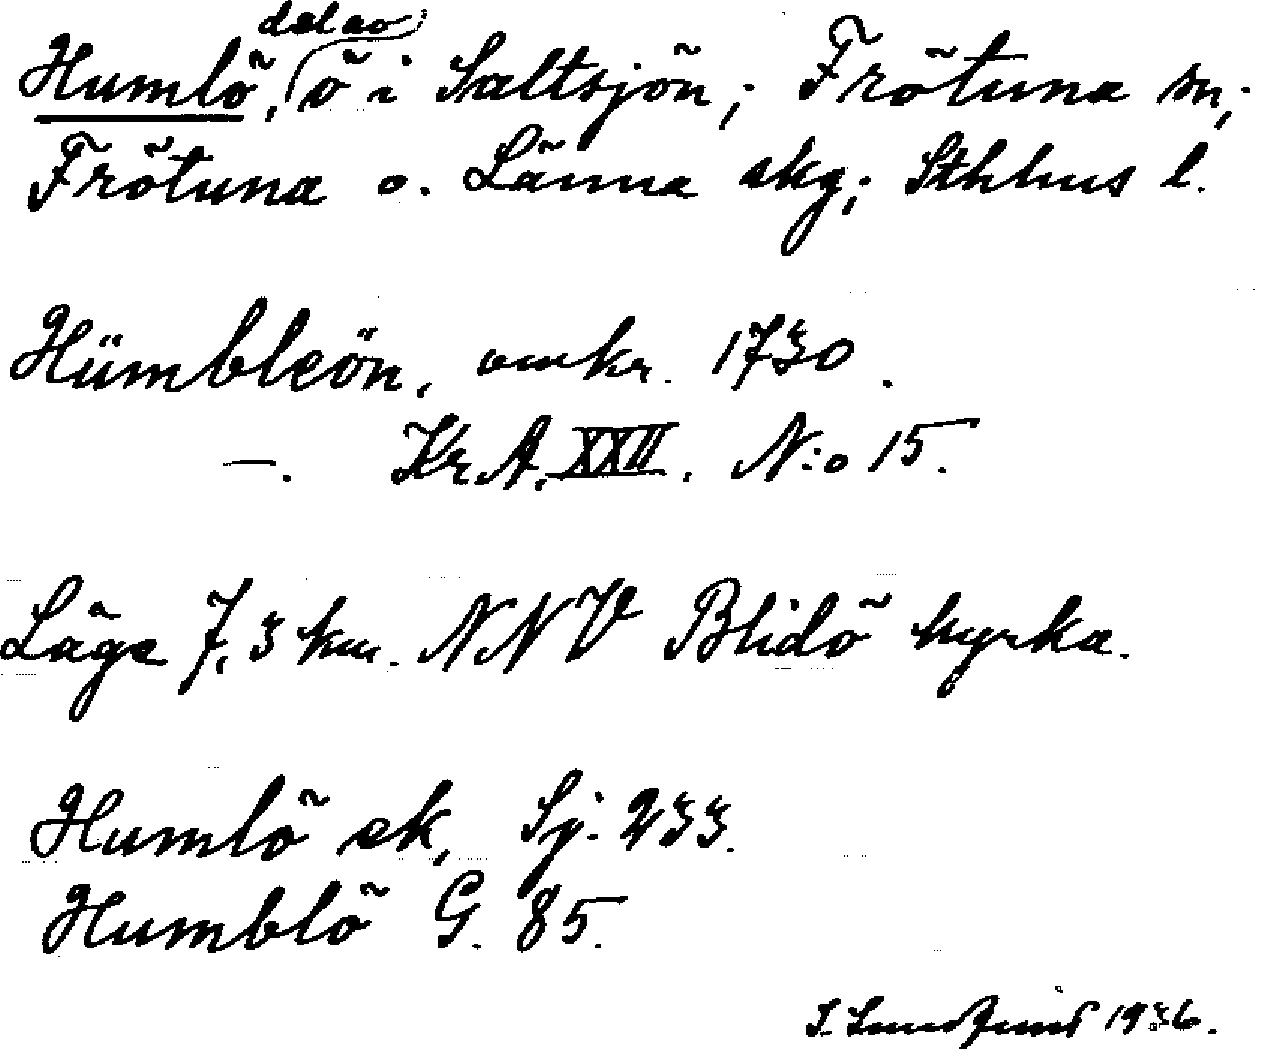 Humlö, del av ö i Saltsjön; Frötuna sn;
Frötuna o. Länna skg; Sthlms l.
Hümbleön, omkr. 1730.
—. Kr.A. XXII. N:o 15.
Läge 7,3 km. NNV Blidö kyrka.
Humlö ek, Sj. 233.
Humblö G. 85.
1936.